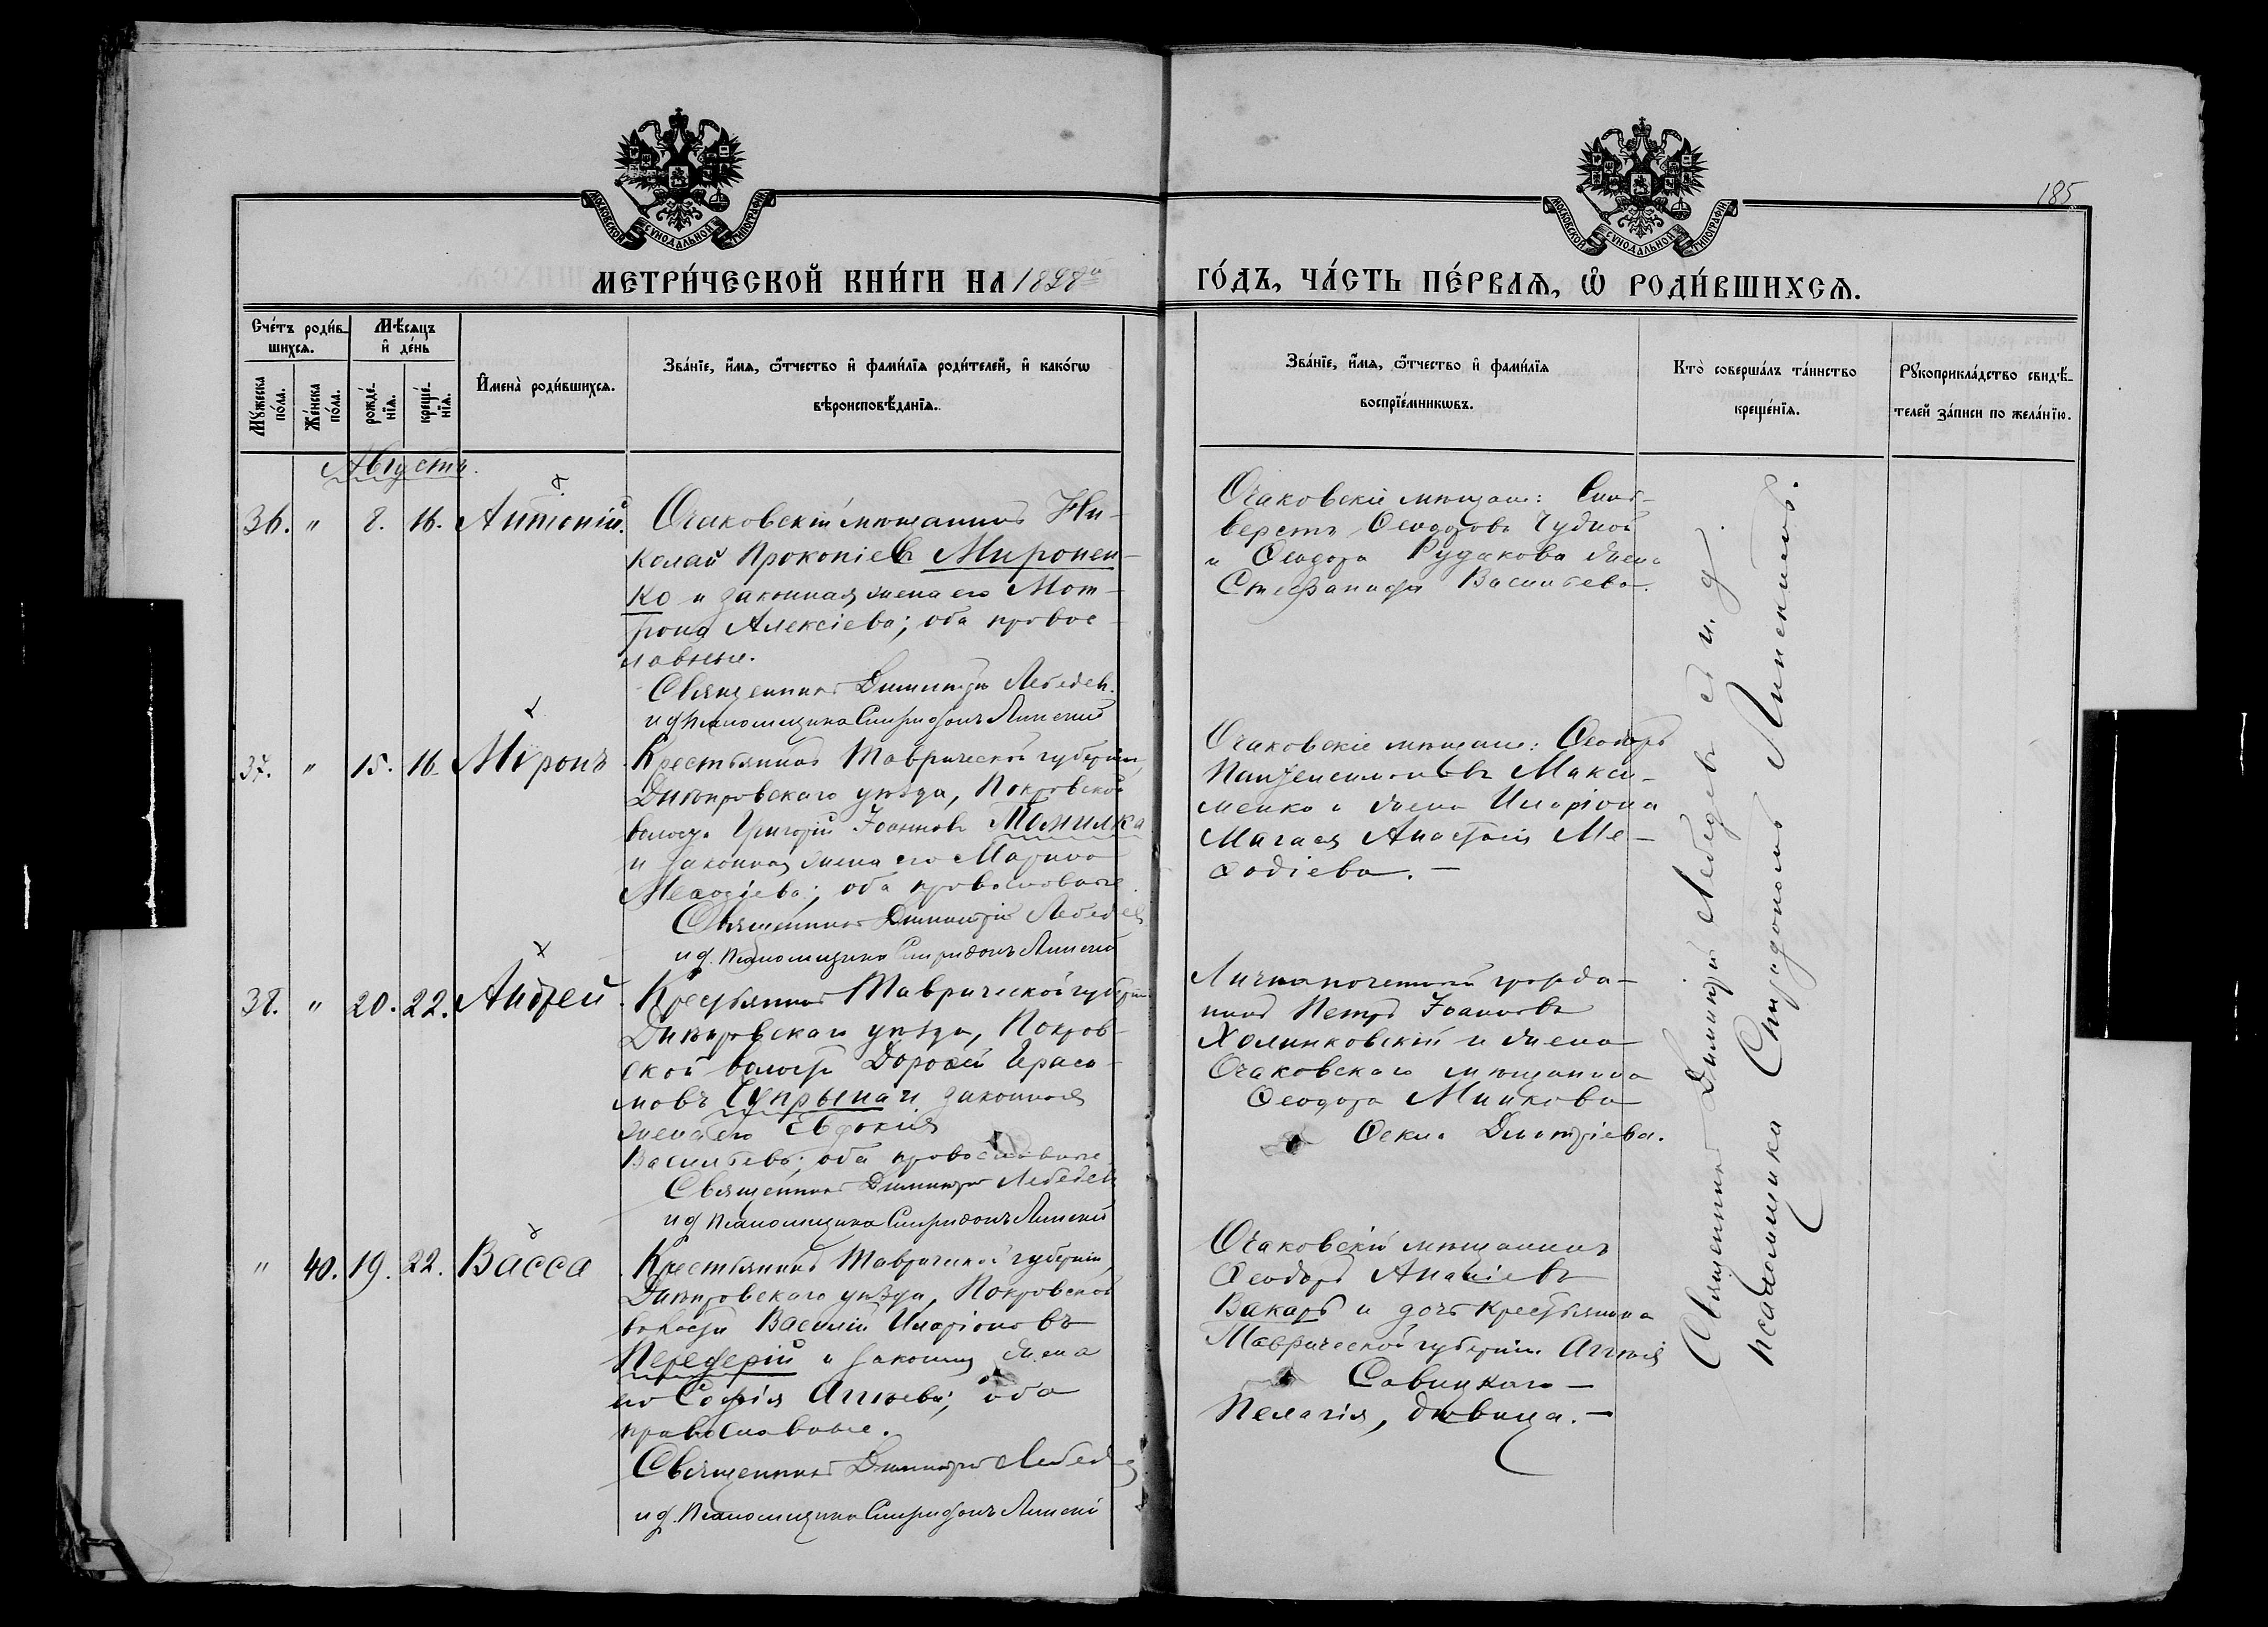 185
МОСКОВСКОЙ СѴНОДАЛЬНОЙ ТИПОГРАФІИ
МОСКОВСКОЙ СѴНОДАЛЬНОЙ ТИПОГРАФІИ
МЕТРИ́ЧЕСКОЙ КНИ́ГИ НА 1898й
ГО́ДЪ, ЧА́СТЬ ПЕ́РВАѦ, Ѡ РОДИ́ВШИХСѦ.
Сче́тъ роди́в-
шихсѧ.
Мꙋ́жеска по́ла.
Же́нска по́ла.
Мѣ́сѧцъ
и҆ де́нь
рожде́-
нїѧ.
креще́-
нїѧ.
И҆мена̀ роди́вшихсѧ.
Зва́нїе, и҆́мѧ, ѻ҆́тчество и҆ фами́лїѧ роди́телей, и҆ како́гѡ
вѣроисповѣ́данїѧ.
Зва́нїе, и҆́мѧ, ѻ҆́тчество и҆ фами́лїѧ
воспрїе́мникѡвъ.
Кто̀ соверша́лъ та́инство
креще́нїѧ.
Рꙋкоприкла́дство свидѣ́-
телей за́писи по жела́нїю.
Августъ.
36. " 8. 16. Антоній.
Очаковскій мѣщанинъ Ни-
колай Прокопіевъ Миронен-
ко и законная жена его Мот-
рона Алексіева; оба правос-
лавные.
Священникъ Димитрій Лебедевъ.
и д. псаломщика Спиридонъ Липскій
Очаковскіе мѣщане: Силь-
верстъ Ѳеодоровъ Чудной
и Ѳеодора Рудакова жена
Стефанида Васильева.
37. " 15. 16. Мѵронъ
Крестьянинъ Таврической губерніи,
Днѣпровскаго уѣзда, Покровской
волости Григорій Іоанновъ Томилка
и законная жена его Марина
Меѳодіева; оба православные.
Священникъ Димитрій Лебедевъ
и д. псаломщика Спиридонъ Липскій
Очаковскіе мѣщане: Ѳеодоръ
Пантелеимоновъ Макси-
менко и жена Иларіона
Магася Анастасія Ме-
ѳодіева. —
38. " 20. 22. Андрей
Крестьянинъ Таврической губерніи
Днѣпровскаго уѣзда, Покров-
ской волости Дороѳей Гераси-
мовъ Супрына и законная
жена его Евдокія
Васильева; оба православные
Священникъ Димитрій Лебедевъ
и д. псаломщика Спиридонъ Липскій
Лично почетный гражда-
нинъ Петръ Іоанновъ
Холинковскій и жена
Очаковскаго мѣщанина
Ѳеодора Минкова
Ѳекла Дмитріева.
" 40. 19. 22. Васса
Крестьянинъ Таврической губерніи,
Днѣпровскаго уѣзда, Покровской
волости Василій Иларіоновъ
Передерій и законная жена
его Софія Аггѣева; оба
православные.
Священникъ Димитрій Лебедевъ
и д. псаломщика Спиридонъ Липскій
Очаковскій мѣщанинъ
Ѳеодоръ Ананіевъ
Вакаръ и дочь крестьянина
Таврической губерніи Аггея
Савицкаго —
Пелагія, дѣвица. —
Священникъ Димитрій Лебедевъ съ и. д.
псаломщика Спиридономъ Липскимъ.